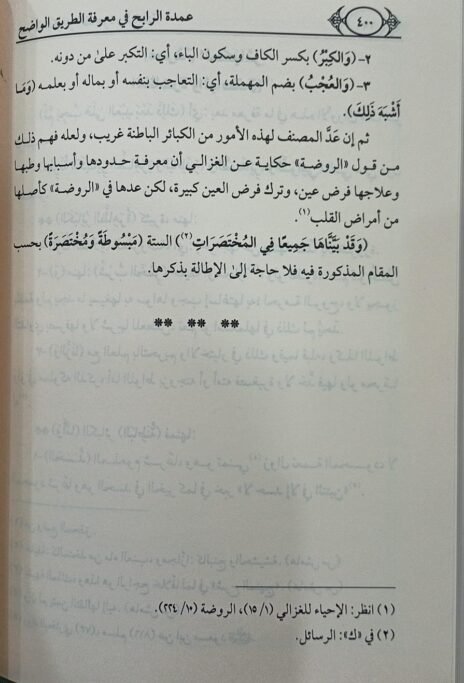 ٤٠٠
عمدة الرابح في معرفة الطريق الواضح
٢- (وَالكِبْرُ) بكسر الكاف وسكون الباء، أي: التكبر على من دونه.
٣- (وَالعُجْبُ) بضم المهملة، أي: التعاجب بنفسه أو بماله أو بعلمه (وَمَا
أَشْبَهَ ذَلِكَ).
ثم إن عَدَّ المصنف لهذه الأمور من الكبائر الباطنة غريب، ولعله فهم ذلك
من قول «الروضة» حكاية عن الغزالي أن معرفة حدودها وأسبابها وطبها
وعلاجها فرض عين، وترك فرض العين كبيرة، لكن عدها في «الروضة» كأصلها
من أمراض القلب(١).
(وَقَدْ بَيَّنَّاهَا جَمِيعًا فِي المُخْتَصَرَاتِ(٢)) الستة (مَبْسُوطَةً وَمُخْتَصَرَةً) بحسب
المقام المذكورة فيه فلا حاجة إلى الإطالة بذكرها.
** ** **
(١) انظر: الإحياء للغزالي (١/ ١٥)، الروضة (١٠/ ٢٢٤).
(٢) في «ك»: الرسائل.